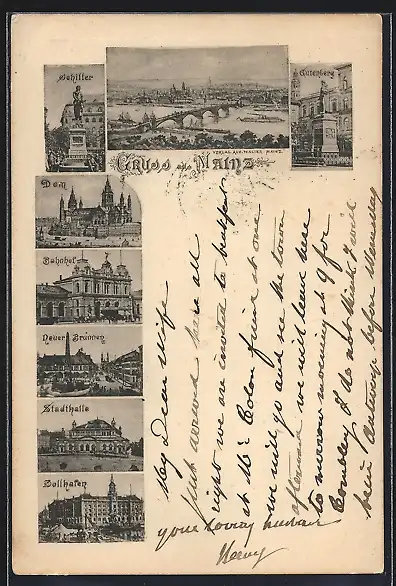 Schiller
Gutenberg
VERLAG
MAINZ
GRUSS a. MAINZ
Dom
Bahnhof
Neuer Brunnen
Stadthalle
Zollhafen
My Dear Wife
Just arrived here all
right we are invited to
at Mr Colon friend at one
we will go and see the town
afterward we will leave here
to morrow morning at 9 for
I do not think I will
be in Antwerp before Wensday
your loving husband
Henry